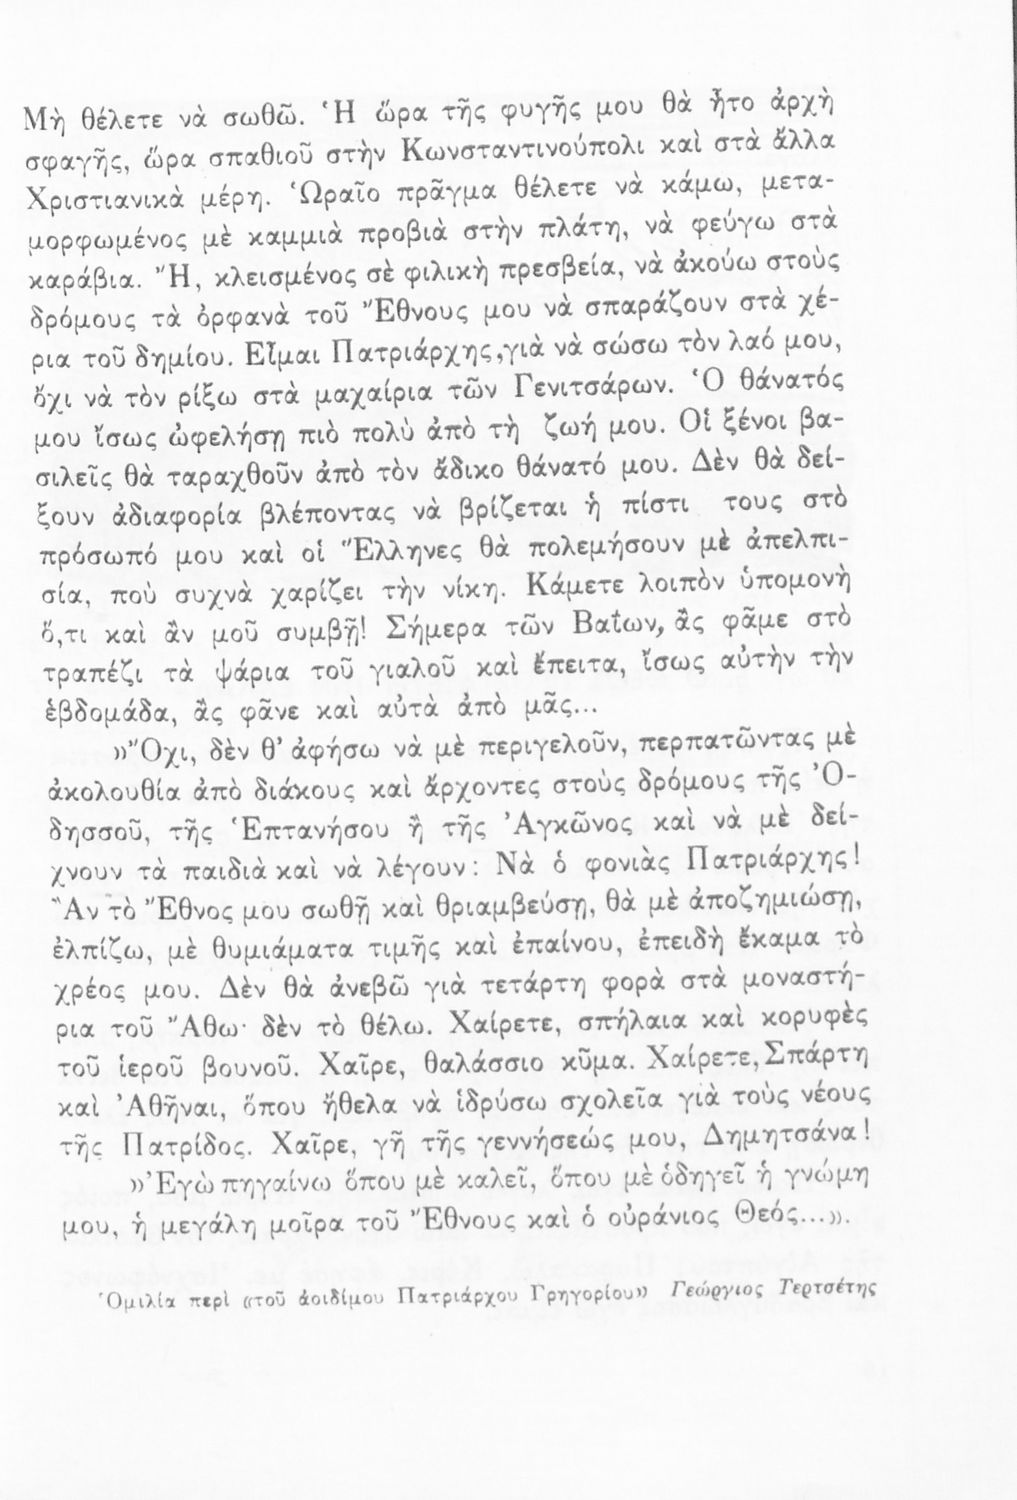 Μὴ θέλετε νὰ σωθῶ. Ἡ ὥρα τῆς φυγῆς μου θὰ ἦτο ἀρχὴ
σφαγῆς, ὥρα σπαθιοῦ στὴν Κωνσταντινούπολι καὶ στὰ ἄλλα
Χριστιανικὰ μέρη. Ὡραῖο πρᾶγμα θέλετε νὰ κάμω, μετα-
μορφωμένος μὲ καμμιὰ προβιὰ στὴν πλάτη, νὰ φεύγω στὰ
καράβια. Ἤ, κλεισμένος σὲ φιλικὴ πρεσβεία, νὰ ἀκούω στοὺς
δρόμους τὰ ὀρφανὰ τοῦ Ἔθνους μου νὰ σπαράζουν στὰ χέ-
ρια τοῦ δημίου. Εἶμαι Πατριάρχης,γιὰ νὰ σώσω τὸν λαό μου,
ὄχι νὰ τὸν ρίξω στὰ μαχαίρια τῶν Γενιτσάρων. Ὁ θάνατός
μου ἴσως ὠφελήσῃ πιὸ πολὺ ἀπὸ τὴ ζωή μου. Οἱ ξένοι βα-
σιλεῖς θὰ ταραχθοῦν ἀπὸ τὸν ἄδικο θάνατό μου. Δὲν θὰ δεί-
ξουν ἀδιαφορία βλέποντας νὰ βρίζεται ἡ πίστι τους στὸ
πρόσωπό μου καὶ οἱ Ἕλληνες θὰ πολεμήσουν μὲ ἀπελπι-
σία, ποὺ συχνὰ χαρίζει τὴν νίκη. Κάμετε λοιπὸν ὑπομονὴ
ὅ,τι καὶ ἂν μοῦ συμβῇ! Σήμερα τῶν Βαΐων, ἂς φᾶμε στὸ
τραπέζι τὰ ψάρια τοῦ γιαλοῦ καὶ ἔπειτα, ἴσως αὐτὴν τὴν
ἑβδομάδα, ἂς φᾶνε καὶ αὐτὰ ἀπὸ μᾶς...
»Ὄχι, δὲν θ' ἀφήσω νὰ μὲ περιγελοῦν, περπατῶντας μὲ
ἀκολουθία ἀπὸ διάκους καὶ ἄρχοντες στοὺς δρόμους τῆς Ὀ-
δησσοῦ, τῆς Ἑπτανήσου ἢ τῆς Ἀγκῶνος καὶ νὰ μὲ δεί-
χνουν τὰ παιδιὰ καὶ νὰ λέγουν: Νὰ ὁ φονιὰς Πατριάρχης!
Ἂν τὸ Ἔθνος μου σωθῇ καὶ θριαμβεύσῃ, θὰ μὲ ἀποζημιώσῃ,
ἐλπίζω, μὲ θυμιάματα τιμῆς καὶ ἐπαίνου, ἐπειδὴ ἔκαμα τὸ
χρέος μου. Δὲν θὰ ἀνεβῶ γιὰ τετάρτη φορὰ στὰ μοναστή-
ρια τοῦ Ἄθω· δὲν τὸ θέλω. Χαίρετε, σπήλαια καὶ κορυφὲς
τοῦ ἱεροῦ βουνοῦ. Χαῖρε, θαλάσσιο κῦμα. Χαίρετε, Σπάρτη
καὶ Ἀθῆναι, ὅπου ἤθελα νὰ ἱδρύσω σχολεῖα γιὰ τοὺς νέους
τῆς Πατρίδος. Χαῖρε, γῆ τῆς γεννήσεώς μου, Δημητσάνα!
»Ἐγὼ πηγαίνω ὅπου μὲ καλεῖ, ὅπου μὲ ὁδηγεῖ ἡ γνώμη
μου, ἡ μεγάλη μοῖρα τοῦ Ἔθνους καὶ ὁ οὐράνιος Θεός...».
Ὁμιλία περὶ «τοῦ ἀοιδίμου Πατριάρχου Γρηγορίου» Γεώργιος Τερτσέτης